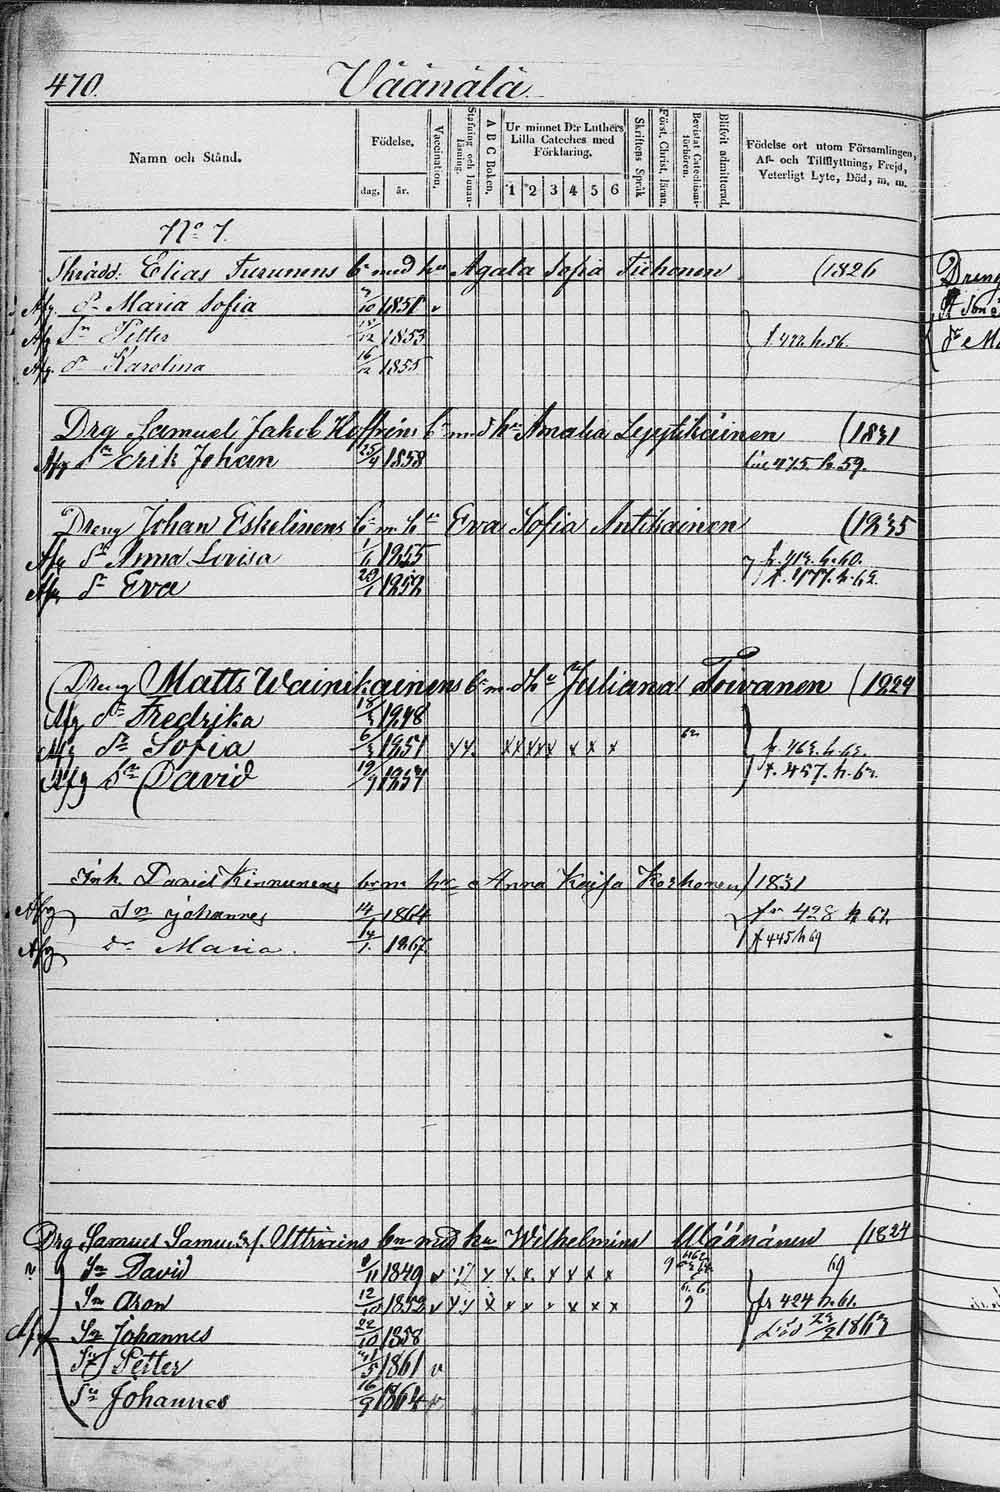 470. Väänälä.
Namn och Stånd.
Födelse.
dag. år.
Vaccination.
Stafning och Innan-läsning.
A B C Boken.
Ur minnet D:r Luthers Lilla Cateches med Förklaring.
1 2 3 4 5 6
Skriftens Språk
Först. Christ. läran.
Bevistat Catechismi-förhören.
Blifvit admitterad.
Födelse ort utom Församlingen, Af- och Tillflyttning, Frejd, Veterligt Lyte, Död, m. m.
No 7.
Skrädd: Elias Turunens bn med hu Agata Sofia Tiihonen (1826
Afg. dr Maria Sofia 1851 v
Afg Sn Petter 1853 f. 472 h. 56.
Afg. dr Karolina 16/12 1855
Drg Samuel Jakob Hoffréns bn m d hu Amalia Leppikäinen (1831
Afg Sn Erik Johan 25/9 1858 475. h. 59.
Dreng Johan Eskelinens bn m hu Eva Sofia Antikainen (1835
Afg dr Anna Lovisa 1855 h. 60.
Afg dr Eva 1858 f. 477. h. 62.
Dreng Matts Wainikainens bn m d hu Juliana Toivanen (1824
Afg dr Fredrika 1848
Afg dr Sofia 1851 x x x x x x x x x x 62
Afg Sn David 19/9 1857 f. 457. h.
Inh. Daniel Kinnunens bn m hu Anna Kaisa Korhonen / 1831
Afg Sn Johannes 14/ 1864 fr 428 h
Afg dr Maria. 14/1. 1867. f 445 h 69
Drg Samuel Samuelsf. Uttriains bn med hu Wilhelmina Väänänen /1824
Sn David 1849 v x x x x x x x x x 69
Sn Aron 12/10 1852 v x x x v v x x x x fr 424 h. 61.
Afg Sn Johannes 22/10 1858 död
Sn Petter 1861 v
Sn Johannes 16/9 1864 v
Dreng